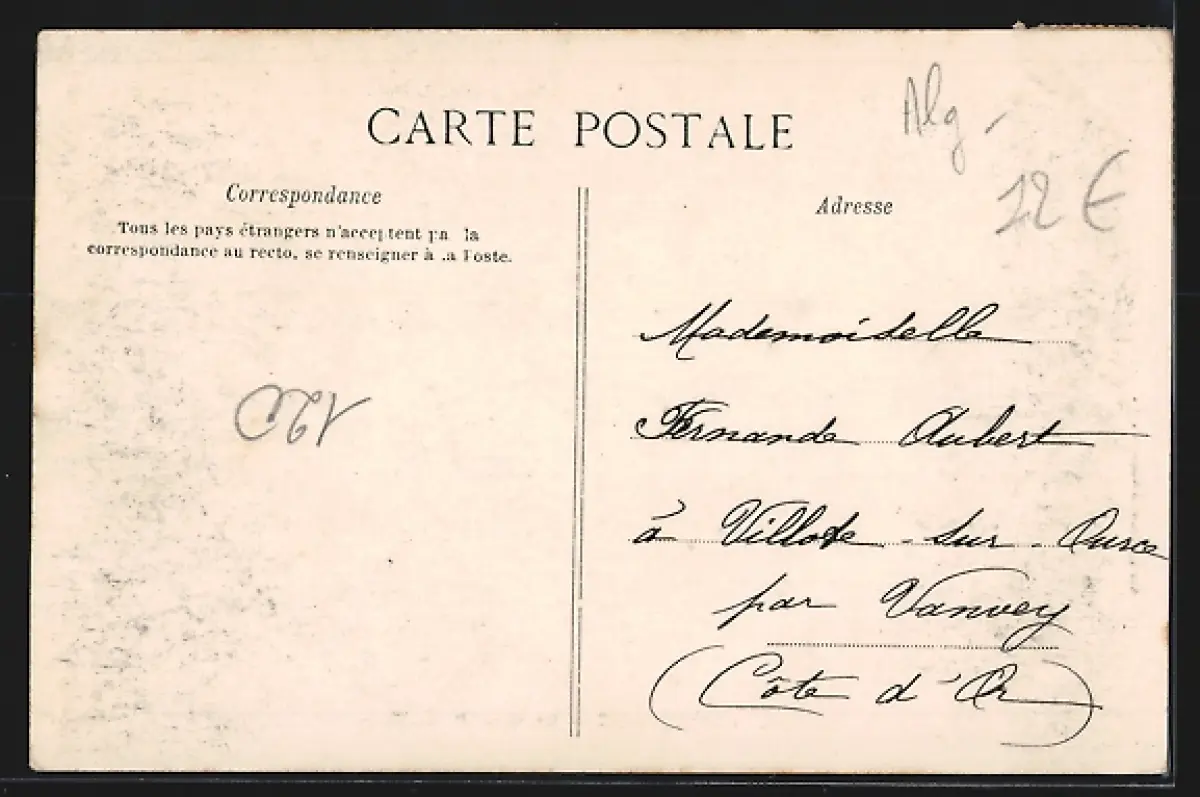 CARTE POSTALE
Alg -
12 €
Correspondance
Tous les pays étrangers n'acceptent pa la
correspondance au recto, se renseigner à la Poste.
120
Adresse
Mademoiselle
Fernande Aubert
à Villote - sur - Ource
par Vanvey
(Côte d'Or)